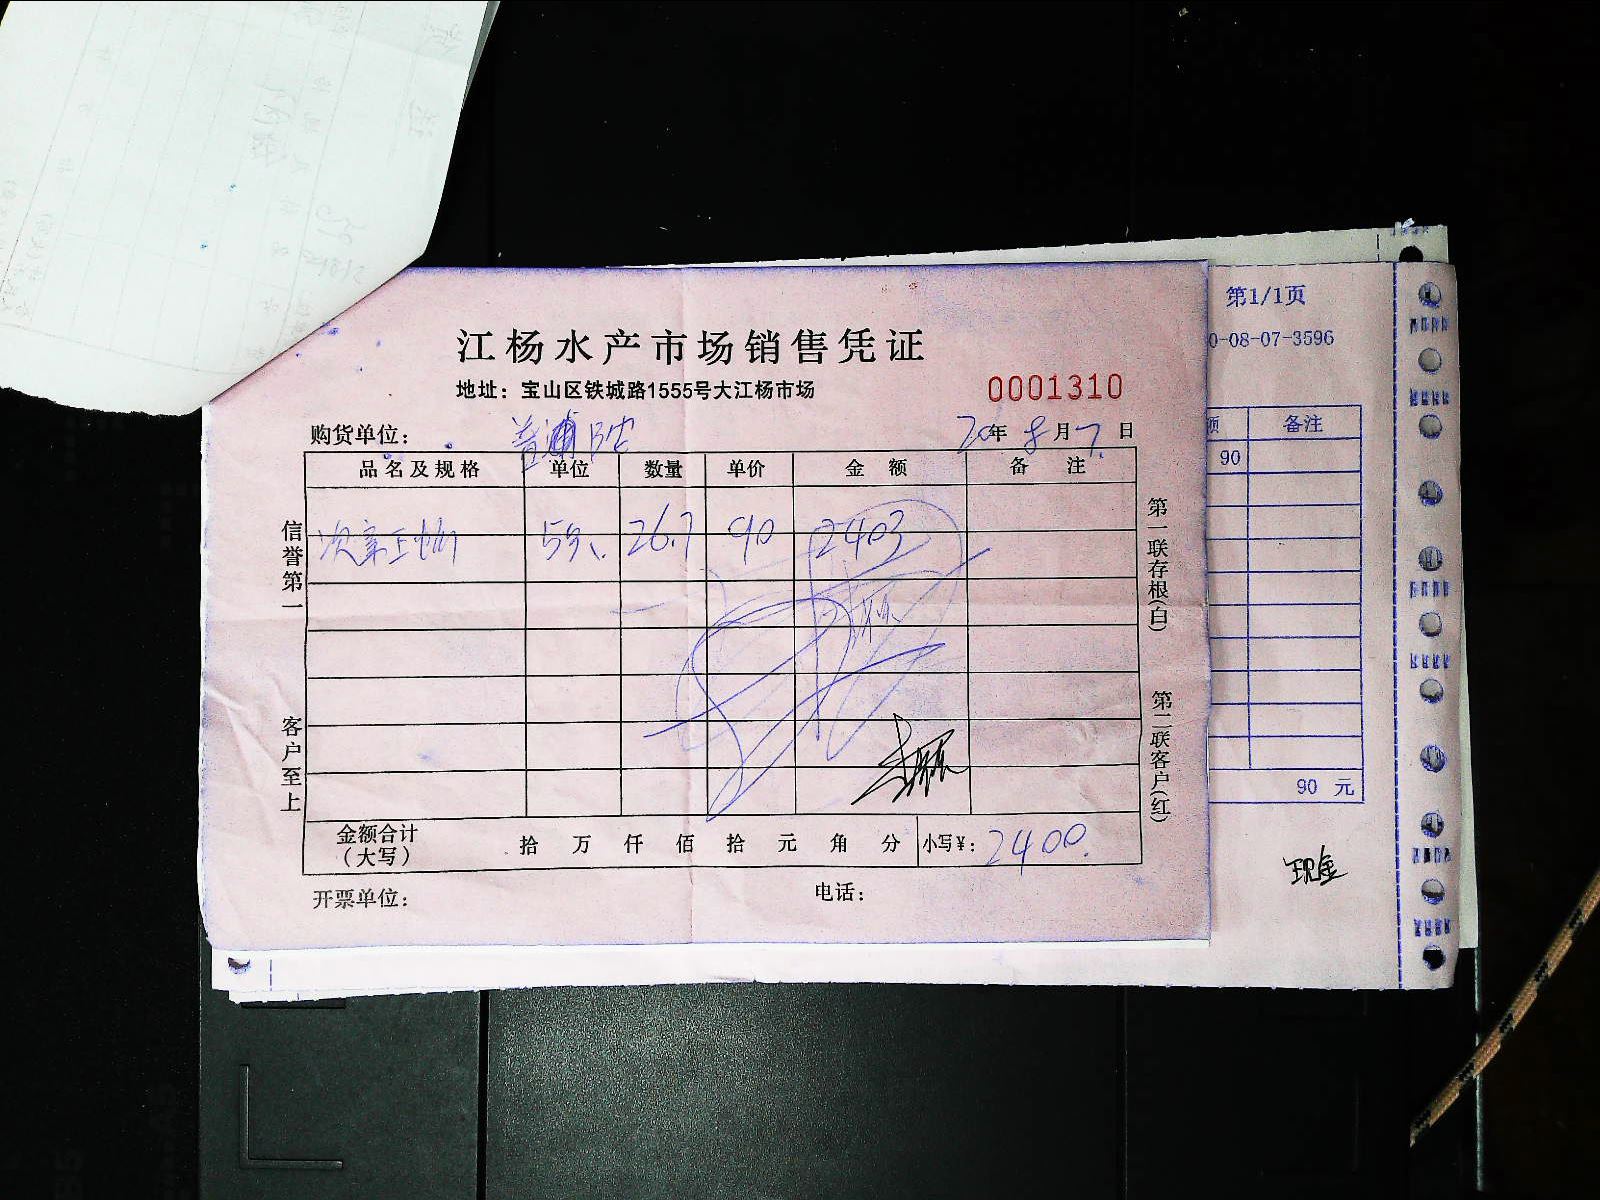 江杨水产市场销售凭证
地址：宝山区铁城路1555号大江杨市场
0001310
购货单位：
20年8月7日
品名及规格 单位 数量 单价 金额 备注
26.7 90 2403
金额合计（大写） 拾 万 仟 佰 拾 元 角 分 小写¥：2400
开票单位： 电话：
信誉第一
客户至上
第一联存根(白)
第二联客户(红)
第1/1页
0-08-07-3596
额 备注
90
90 元
现金